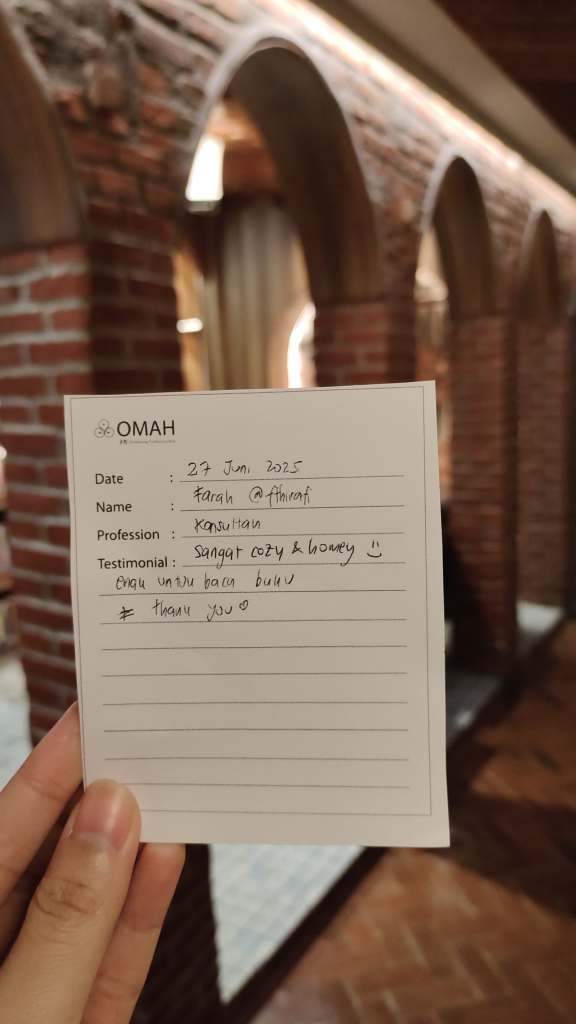 OMAH
Date : 27 Juni 2025
Name : Farah @fthirafi
Profession : Konsultan
Testimonial : Sangat cozy & homey :)
enak untuk baca buku
thank you ♡